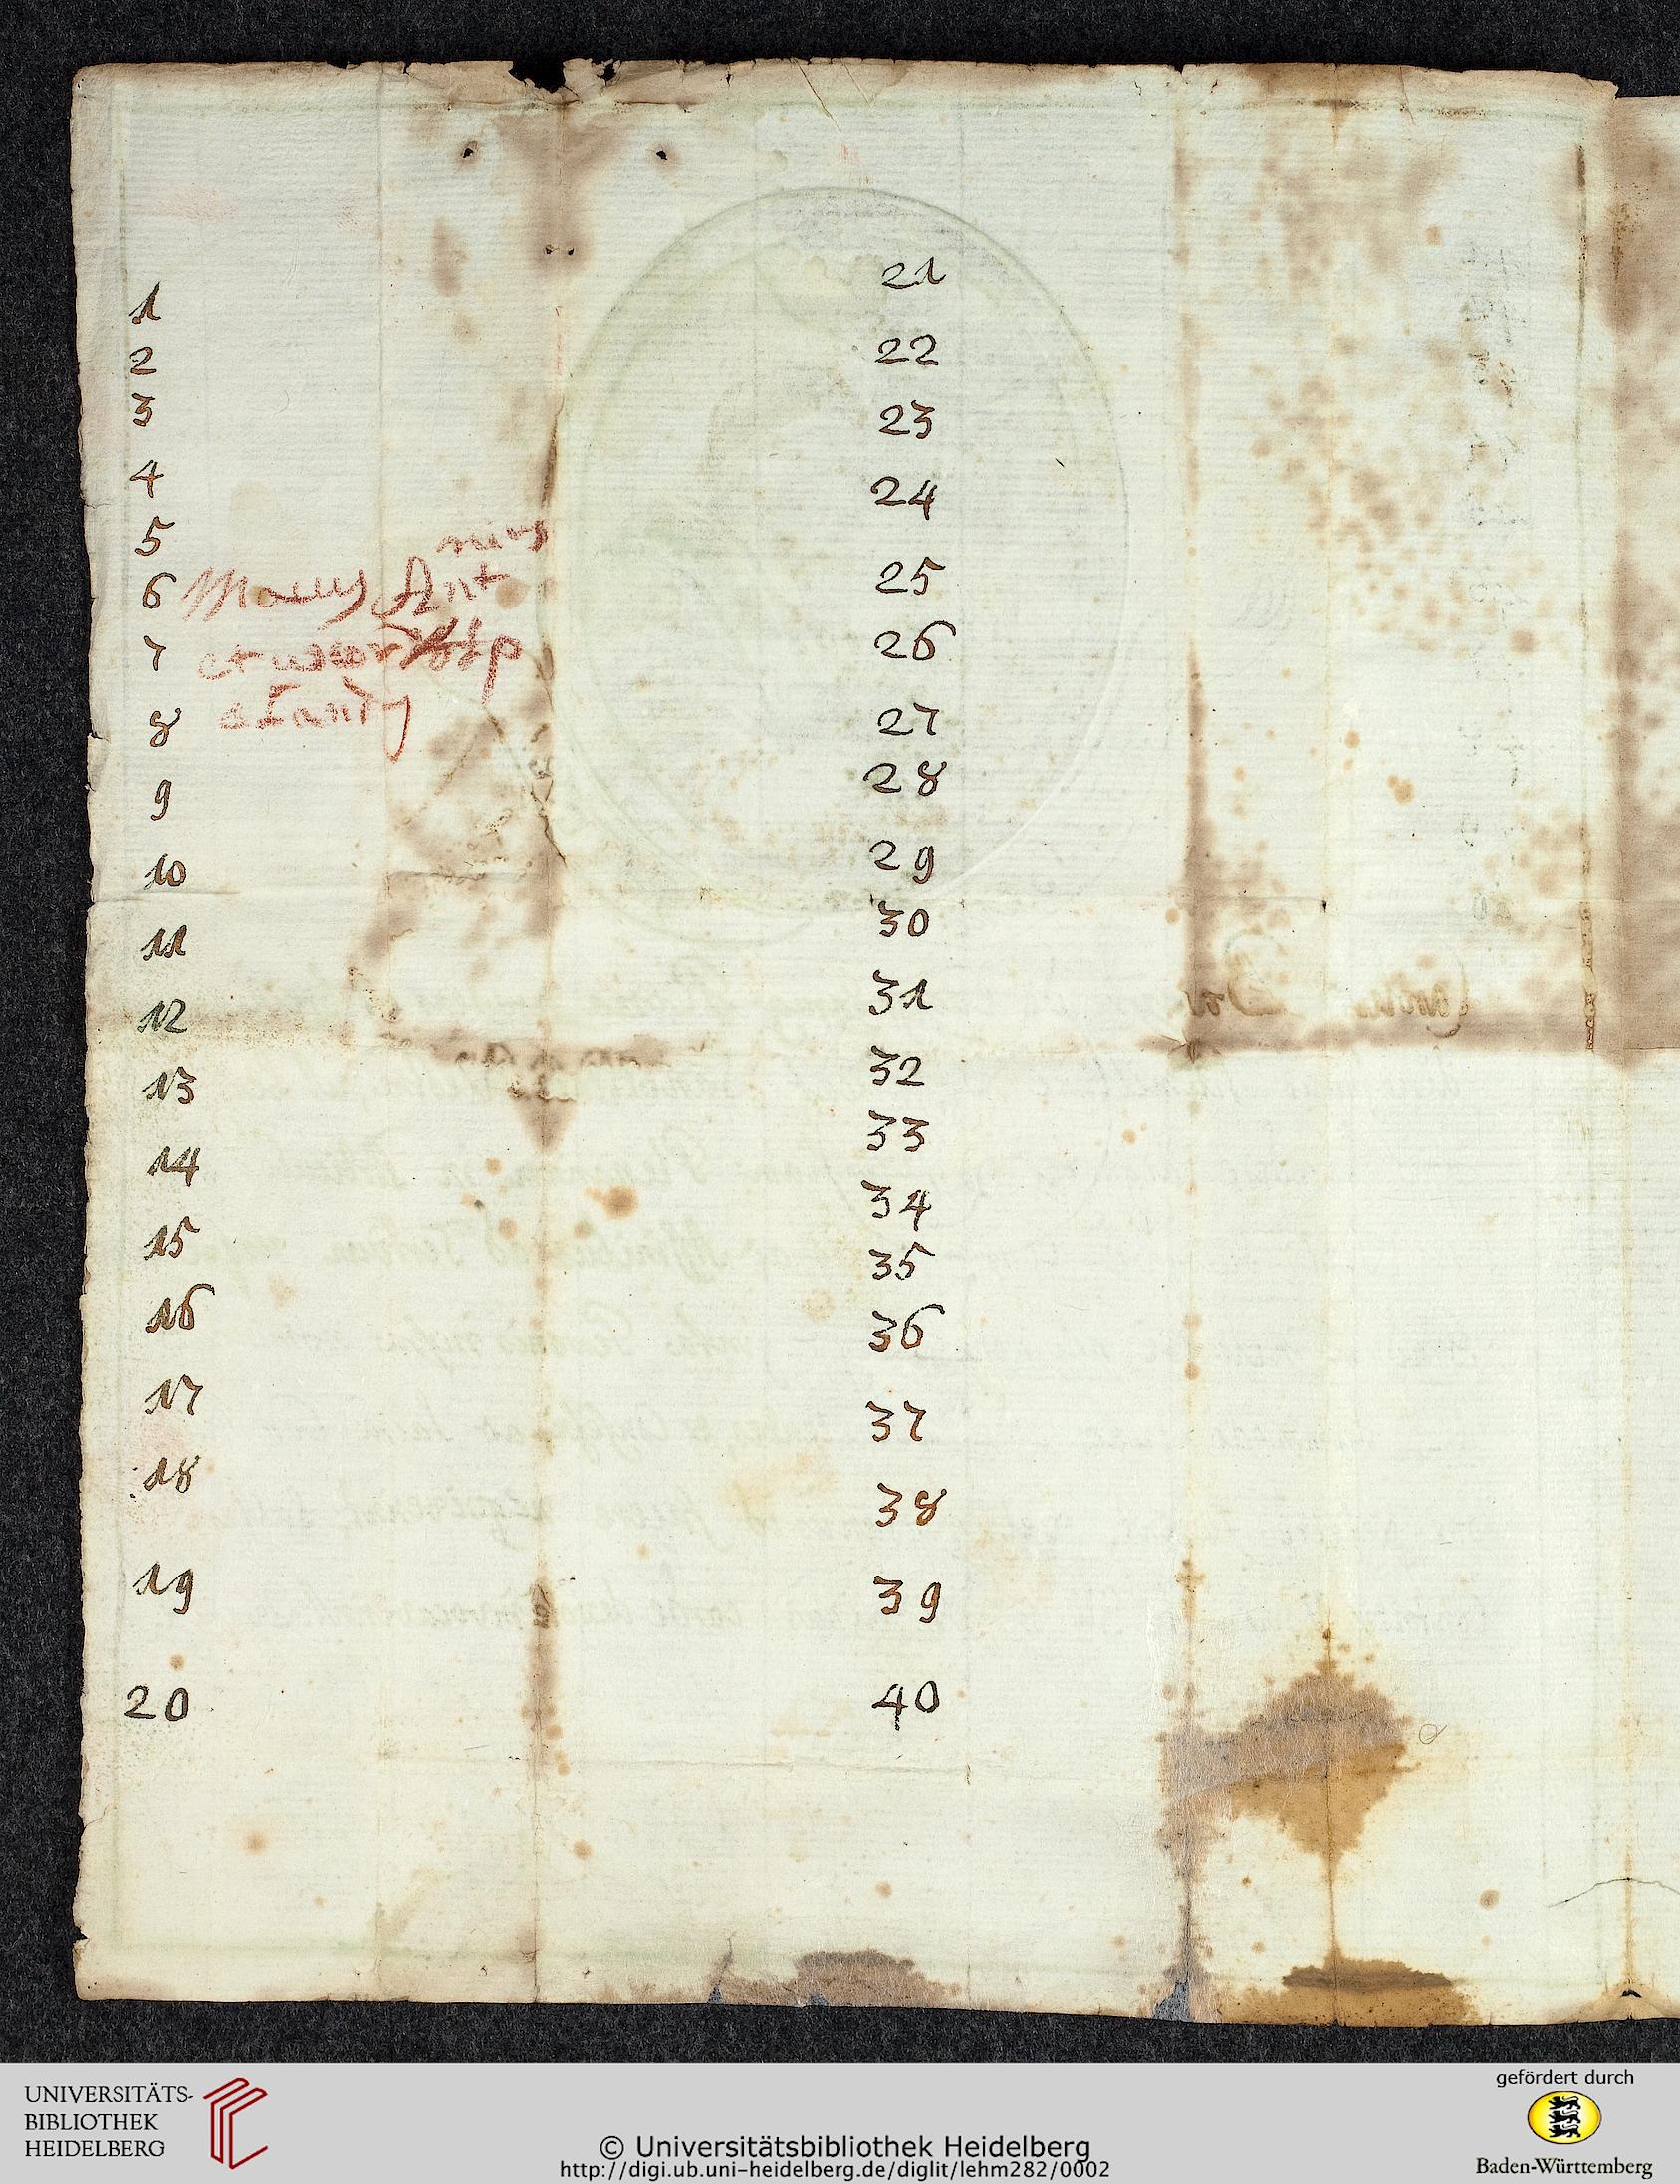 1
2
3
4
5
6
7
8
9
10
11
12
13
14
15
16
17
18
19
20
nius
Ant
et uxor
21
22
23
24
25
26
27
28
29
30
31
32
33
34
35
36
37
38
39
40
UNIVERSITÄTS-
BIBLIOTHEK
HEIDELBERG
© Universitätsbibliothek Heidelberg
http://digi.ub.uni-heidelberg.de/diglit/lehm282/0002
gefördert durch
Baden-Württemberg